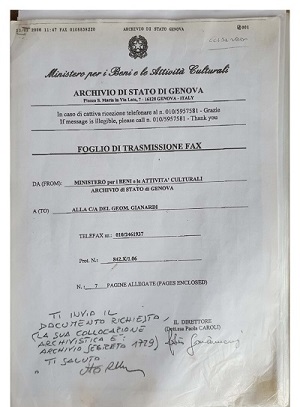 2006 11:47 FAX ARCHIVIO DI STATO GENOVA 001
Ministero per i Beni e le Attività Culturali
ARCHIVIO DI STATO DI GENOVA
Piazza S. Maria in Via Lata, 7 - 16128 GENOVA - ITALY
In caso di cattiva ricezione telefonare al n. 010/5957581 - Grazie
If message is illegible, please call n. 010/5957581 - Thank you
FOGLIO DI TRASMISSIONE FAX
DA (FROM): MINISTERO per i BENI e le ATTIVITA' CULTURALI
ARCHIVIO di STATO di GENOVA
A (TO): ALLA C/A DEL GEOM. GIANARDI
TELEFAX nr.: 010/2461937
Prot. N.: 842.X/1.06
N.: 7 PAGINE ALLEGATE (PAGES ENCLOSED)
TI INVIO IL
DOCUMENTO RICHIESTO
(LA SUA COLLOCAZIONE
ARCHIVISTICA E':
ARCHIVIO SEGRETO 1779)
TI SALUTO
IL DIRETTORE
(Dott.ssa Paola CAROLI)